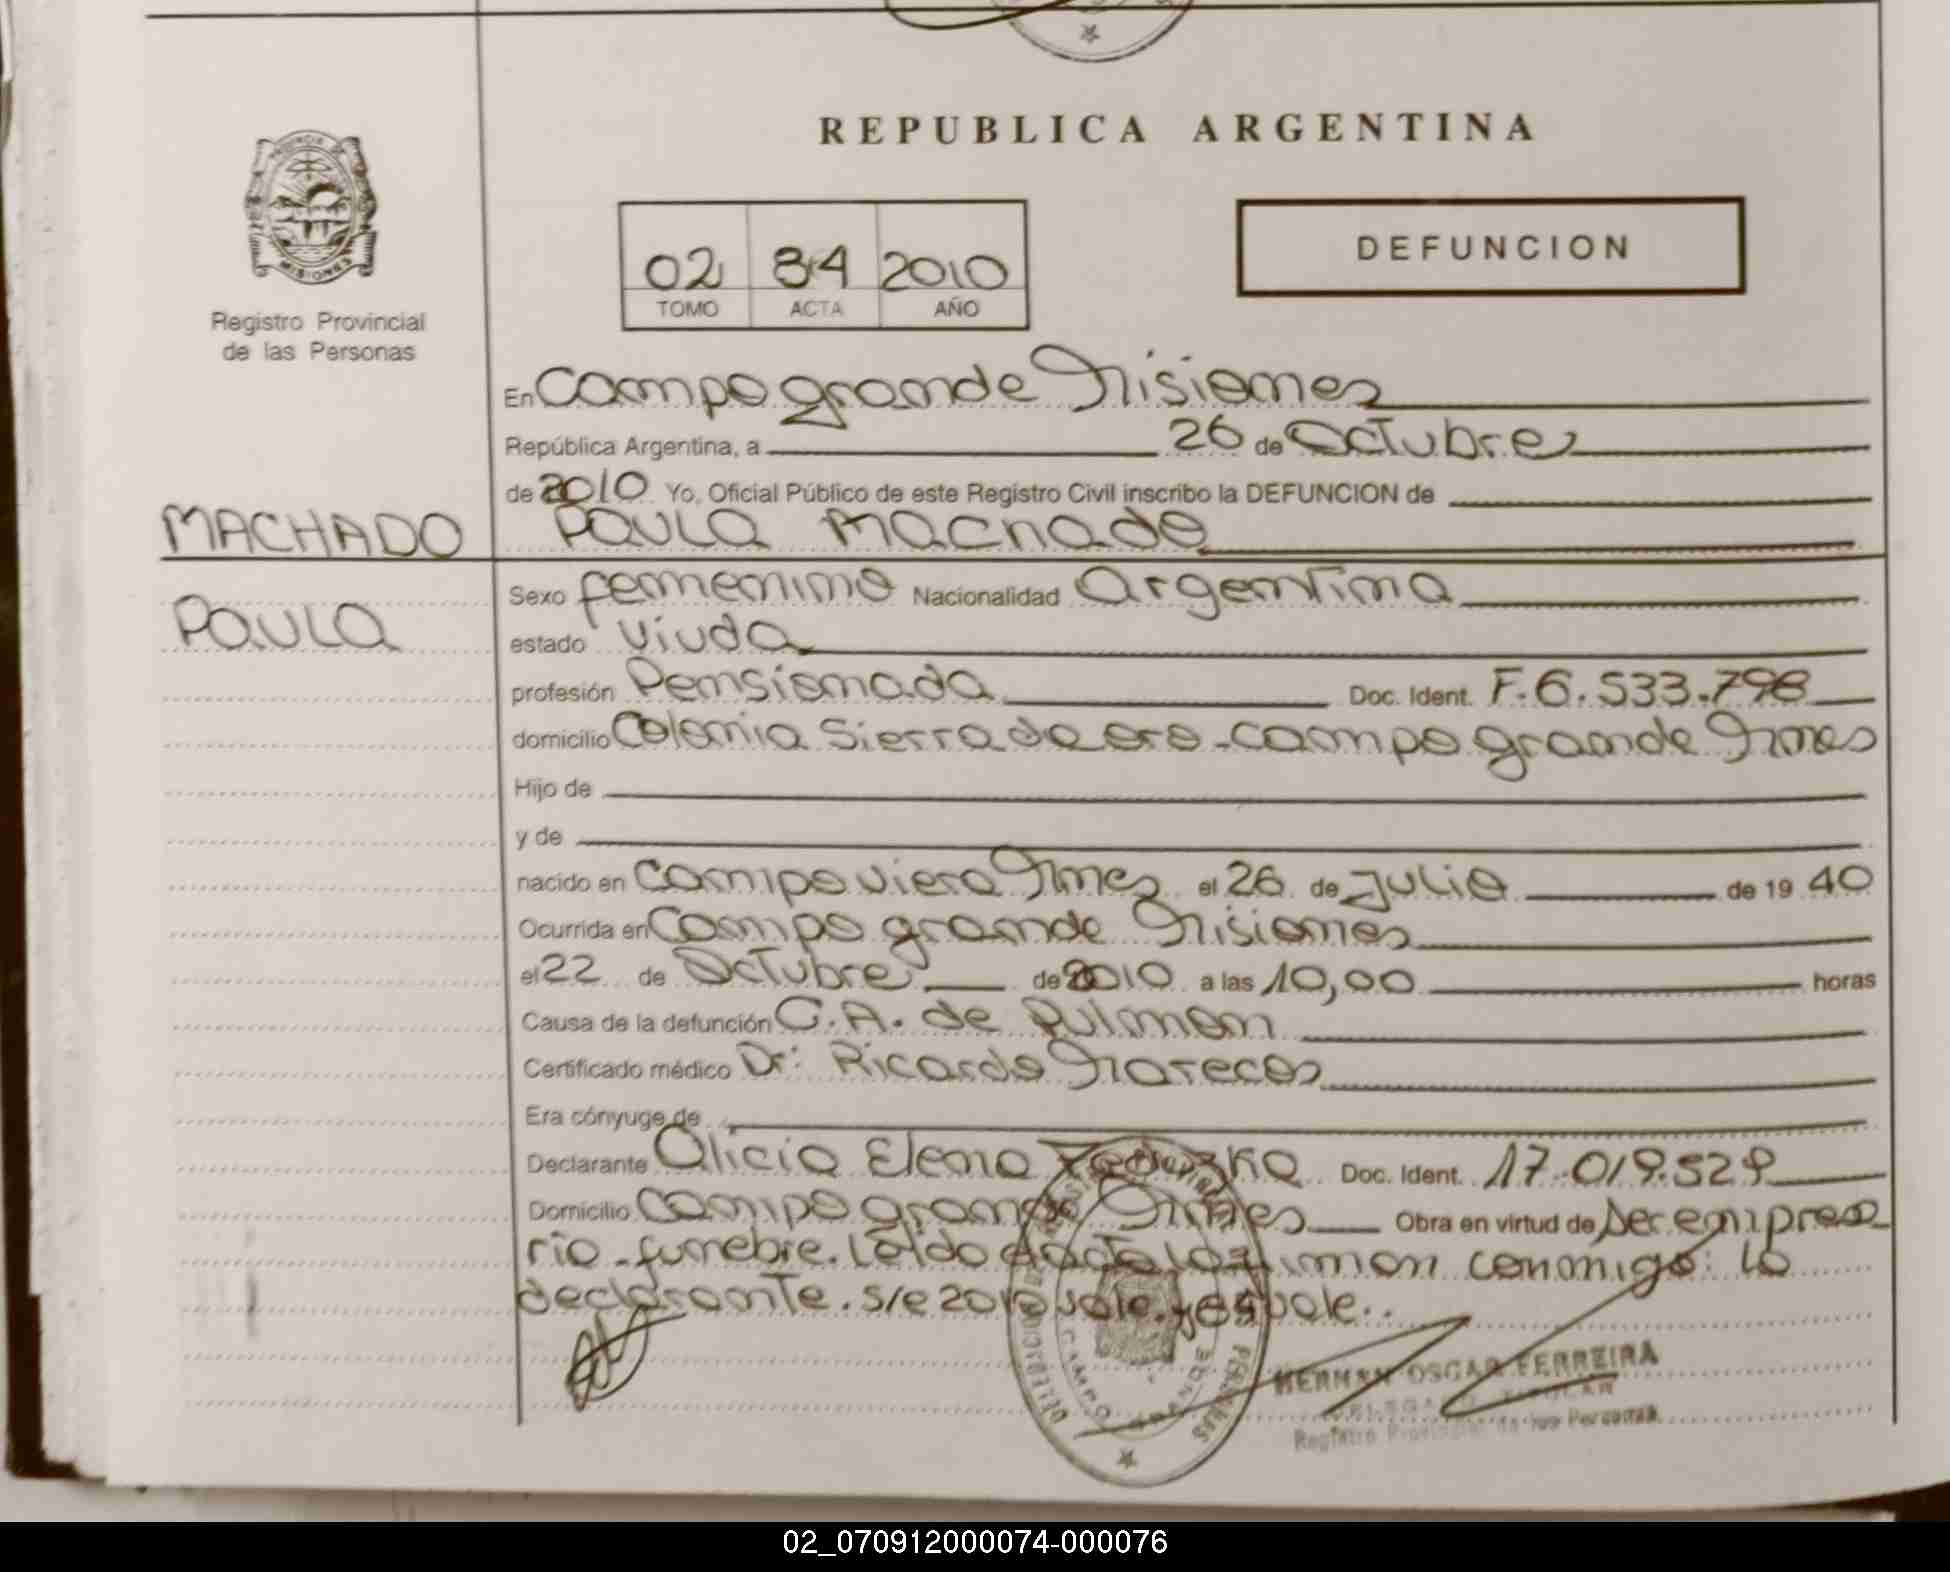 REPUBLICA ARGENTINA
PROVINCIA DE
MISIONES
Registro Provincial
de las Personas
02 84 2010
TOMO ACTA AÑO
DEFUNCION
En Campo grande Misiones
República Argentina, a 26 de Octubre
de 2010 Yo, Oficial Público de este Registro Civil inscribo la DEFUNCION de
MACHADO Paula Machado
PAULA
Sexo femenino Nacionalidad Argentina
estado viuda
profesión Pensionada Doc. Ident. F.6.533.798
domicilio Colonia Sierra de oro - Campo grande Mnes
Hijo de
y de
nacido en Campo viera Mnes el 26 de Julio de 19 40
Ocurrida en Campo grande Misiones
el 22 de Octubre de 2010 a las 10,00 horas
Causa de la defunción C.A. de Pulmon
Certificado médico Dr: Ricardo Marecos
Era cónyuge de
Declarante Alicia Elena Doc. Ident. 17.019.529
Domicilio Campo grande Mnes Obra en virtud de ser empresa
rio funebre. Leido acta la firman conmigo: la
declarante. s/e 2010 vale. y 84 vale.
CAMPO GRANDE
HERNAN OSCAR FERREIRA
DELEGADO TITULAR
Registro Provincial de las Personas
02_070912000074-000076